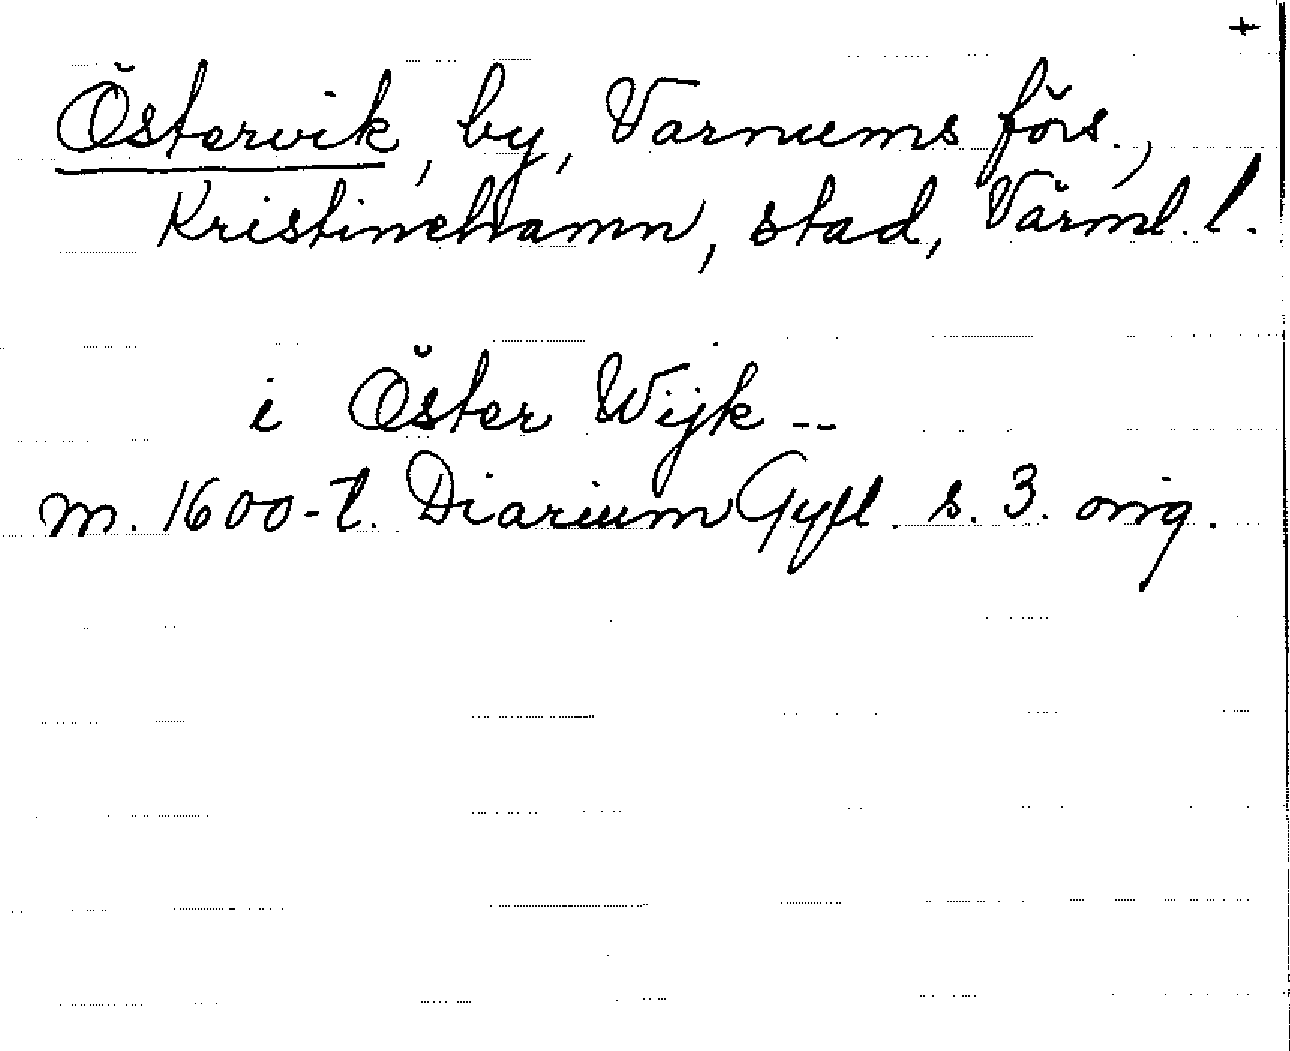 +
Östervik, by, Varnums förs.,
Kristinehamn, stad, Värml. l.
i Öster Wijk --
m. 1600-t. Diarium Gyll. s. 3. orig.